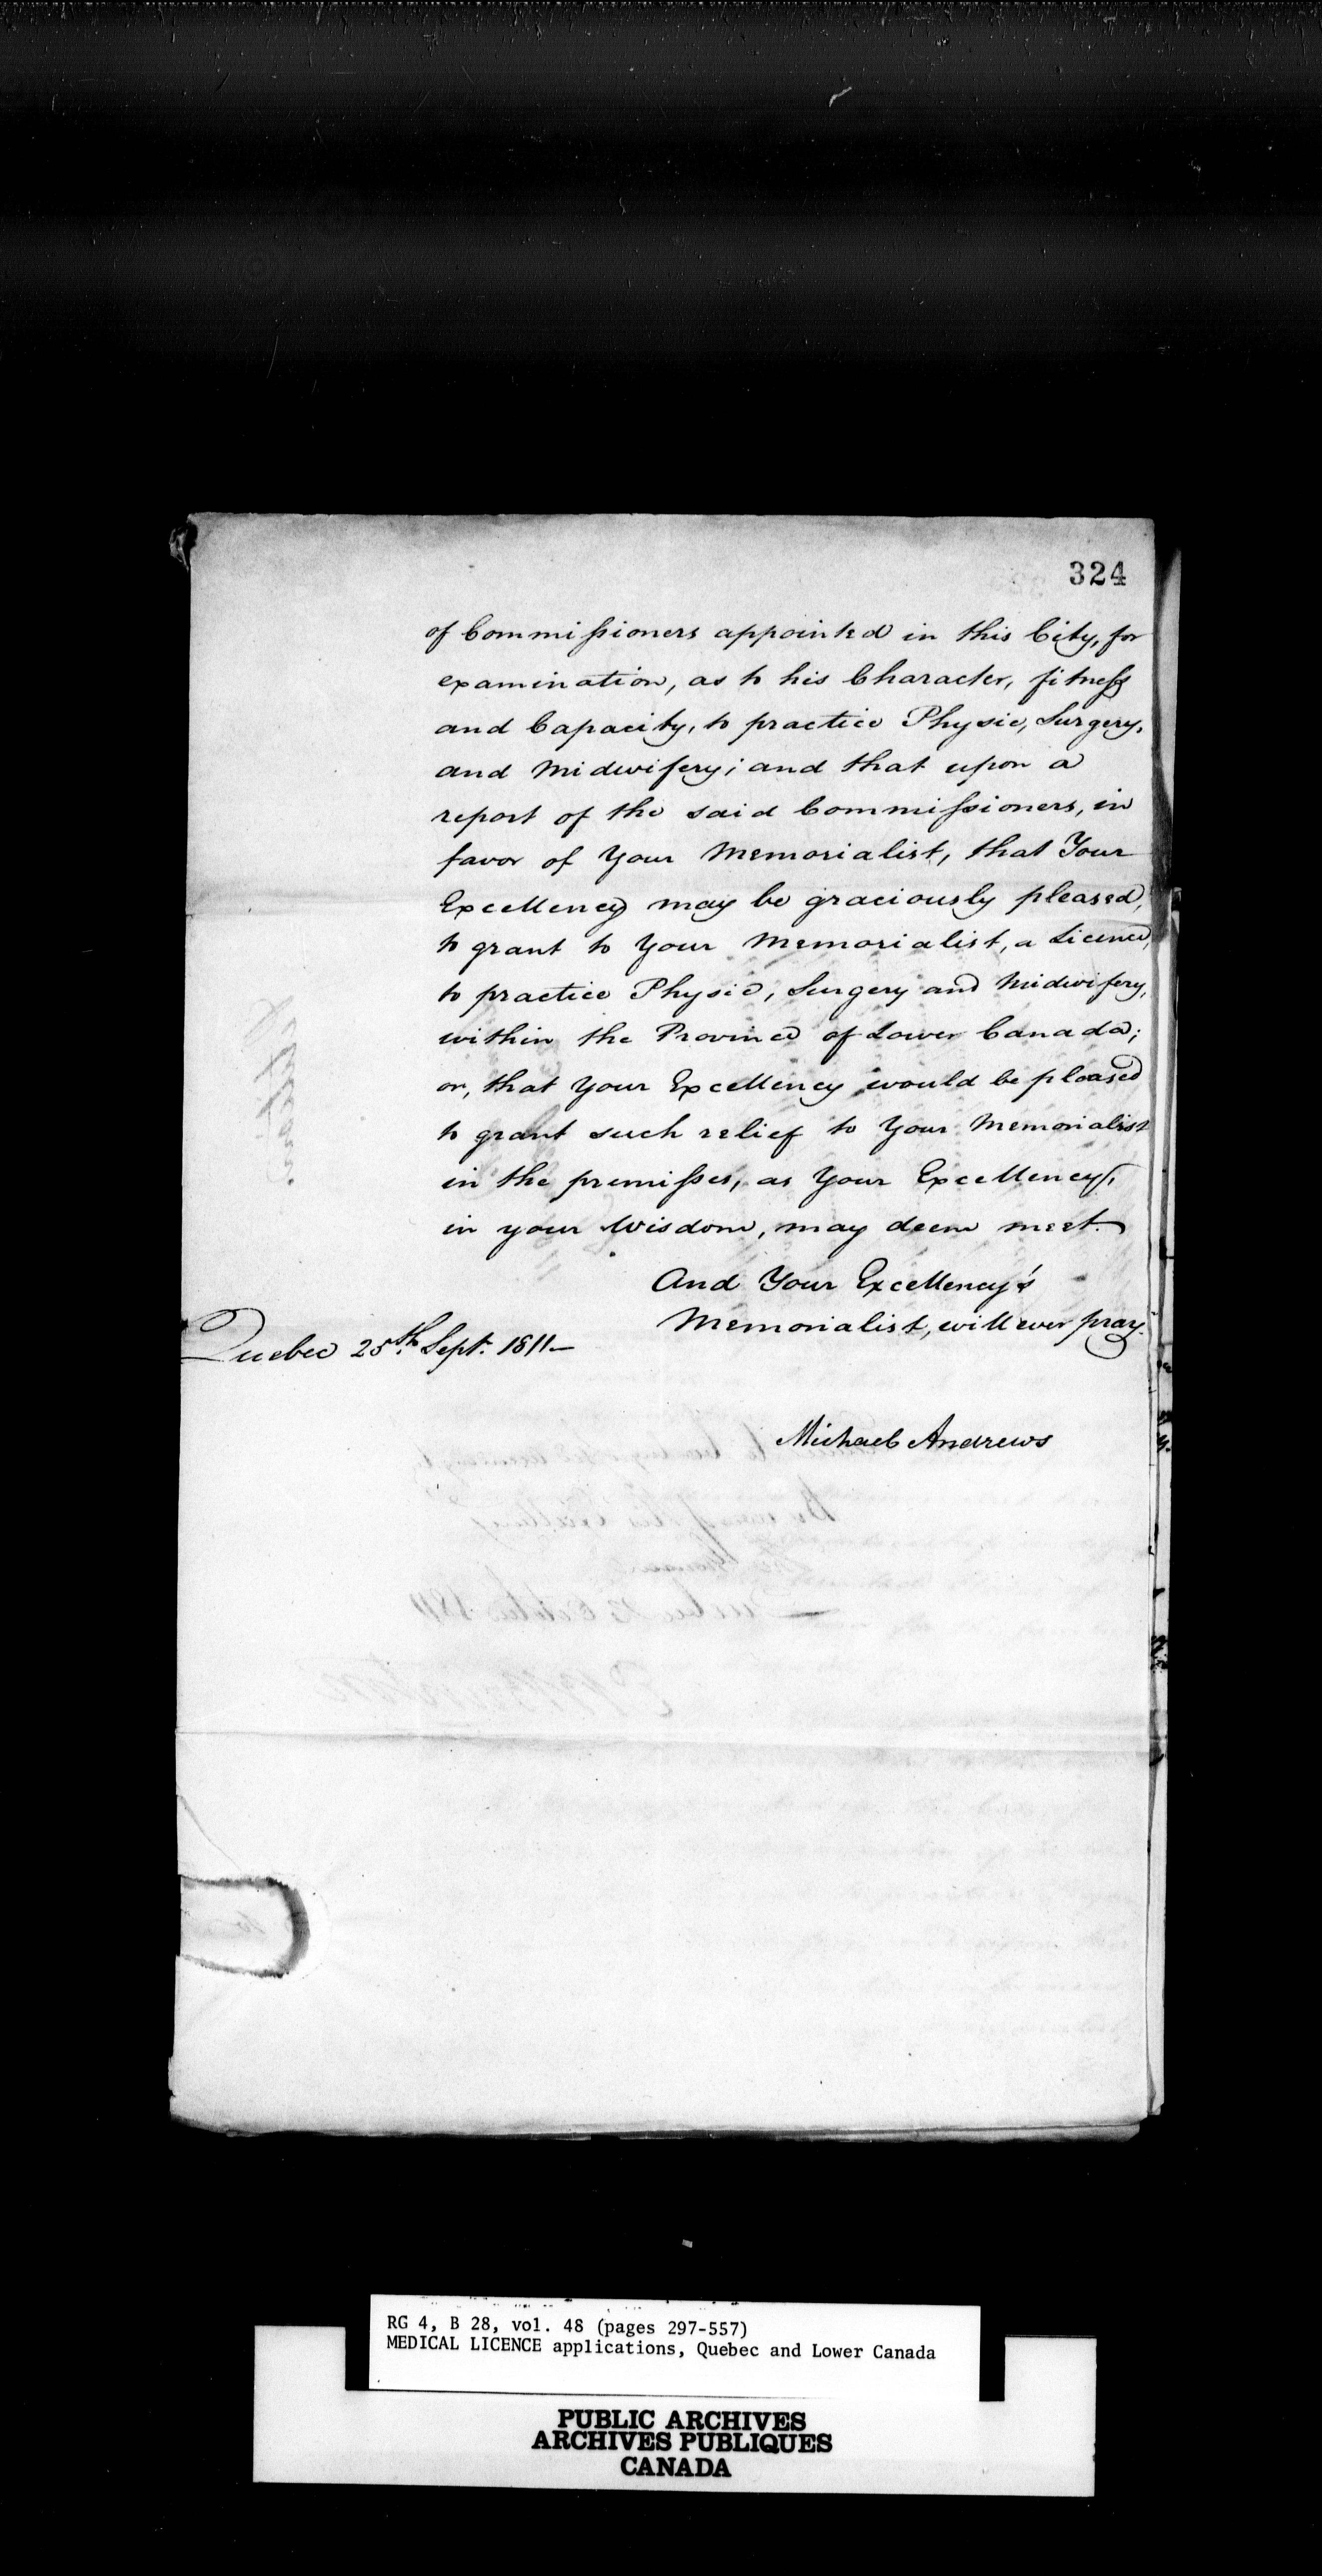 324
of Commissioners appointed in this City, for
examination, as to his Character, fitness
and Capacity, to practice Physic, Surgery,
and Midwifery; and that upon a
report of the said Commissioners, in
favor of Your Memorialist, that Your
Excellency may be graciously pleased,
to grant to Your Memorialist, a Licence,
to practice Physic, Surgery and Midwifery,
within the Province of Lower Canada;
or, that Your Excellency would be pleased
to grant such relief to Your Memorialist
in the premisses, as Your Excellency,
in your Wisdom, may deem meet.
And Your Excellency's
Memorialist, will ever pray.
Quebec 25th. Sept. 1811—
Michael Andrews
RG 4, B 28, vol. 48 (pages 297-557)
MEDICAL LICENCE applications, Quebec and Lower Canada
PUBLIC ARCHIVES
ARCHIVES PUBLIQUES
CANADA